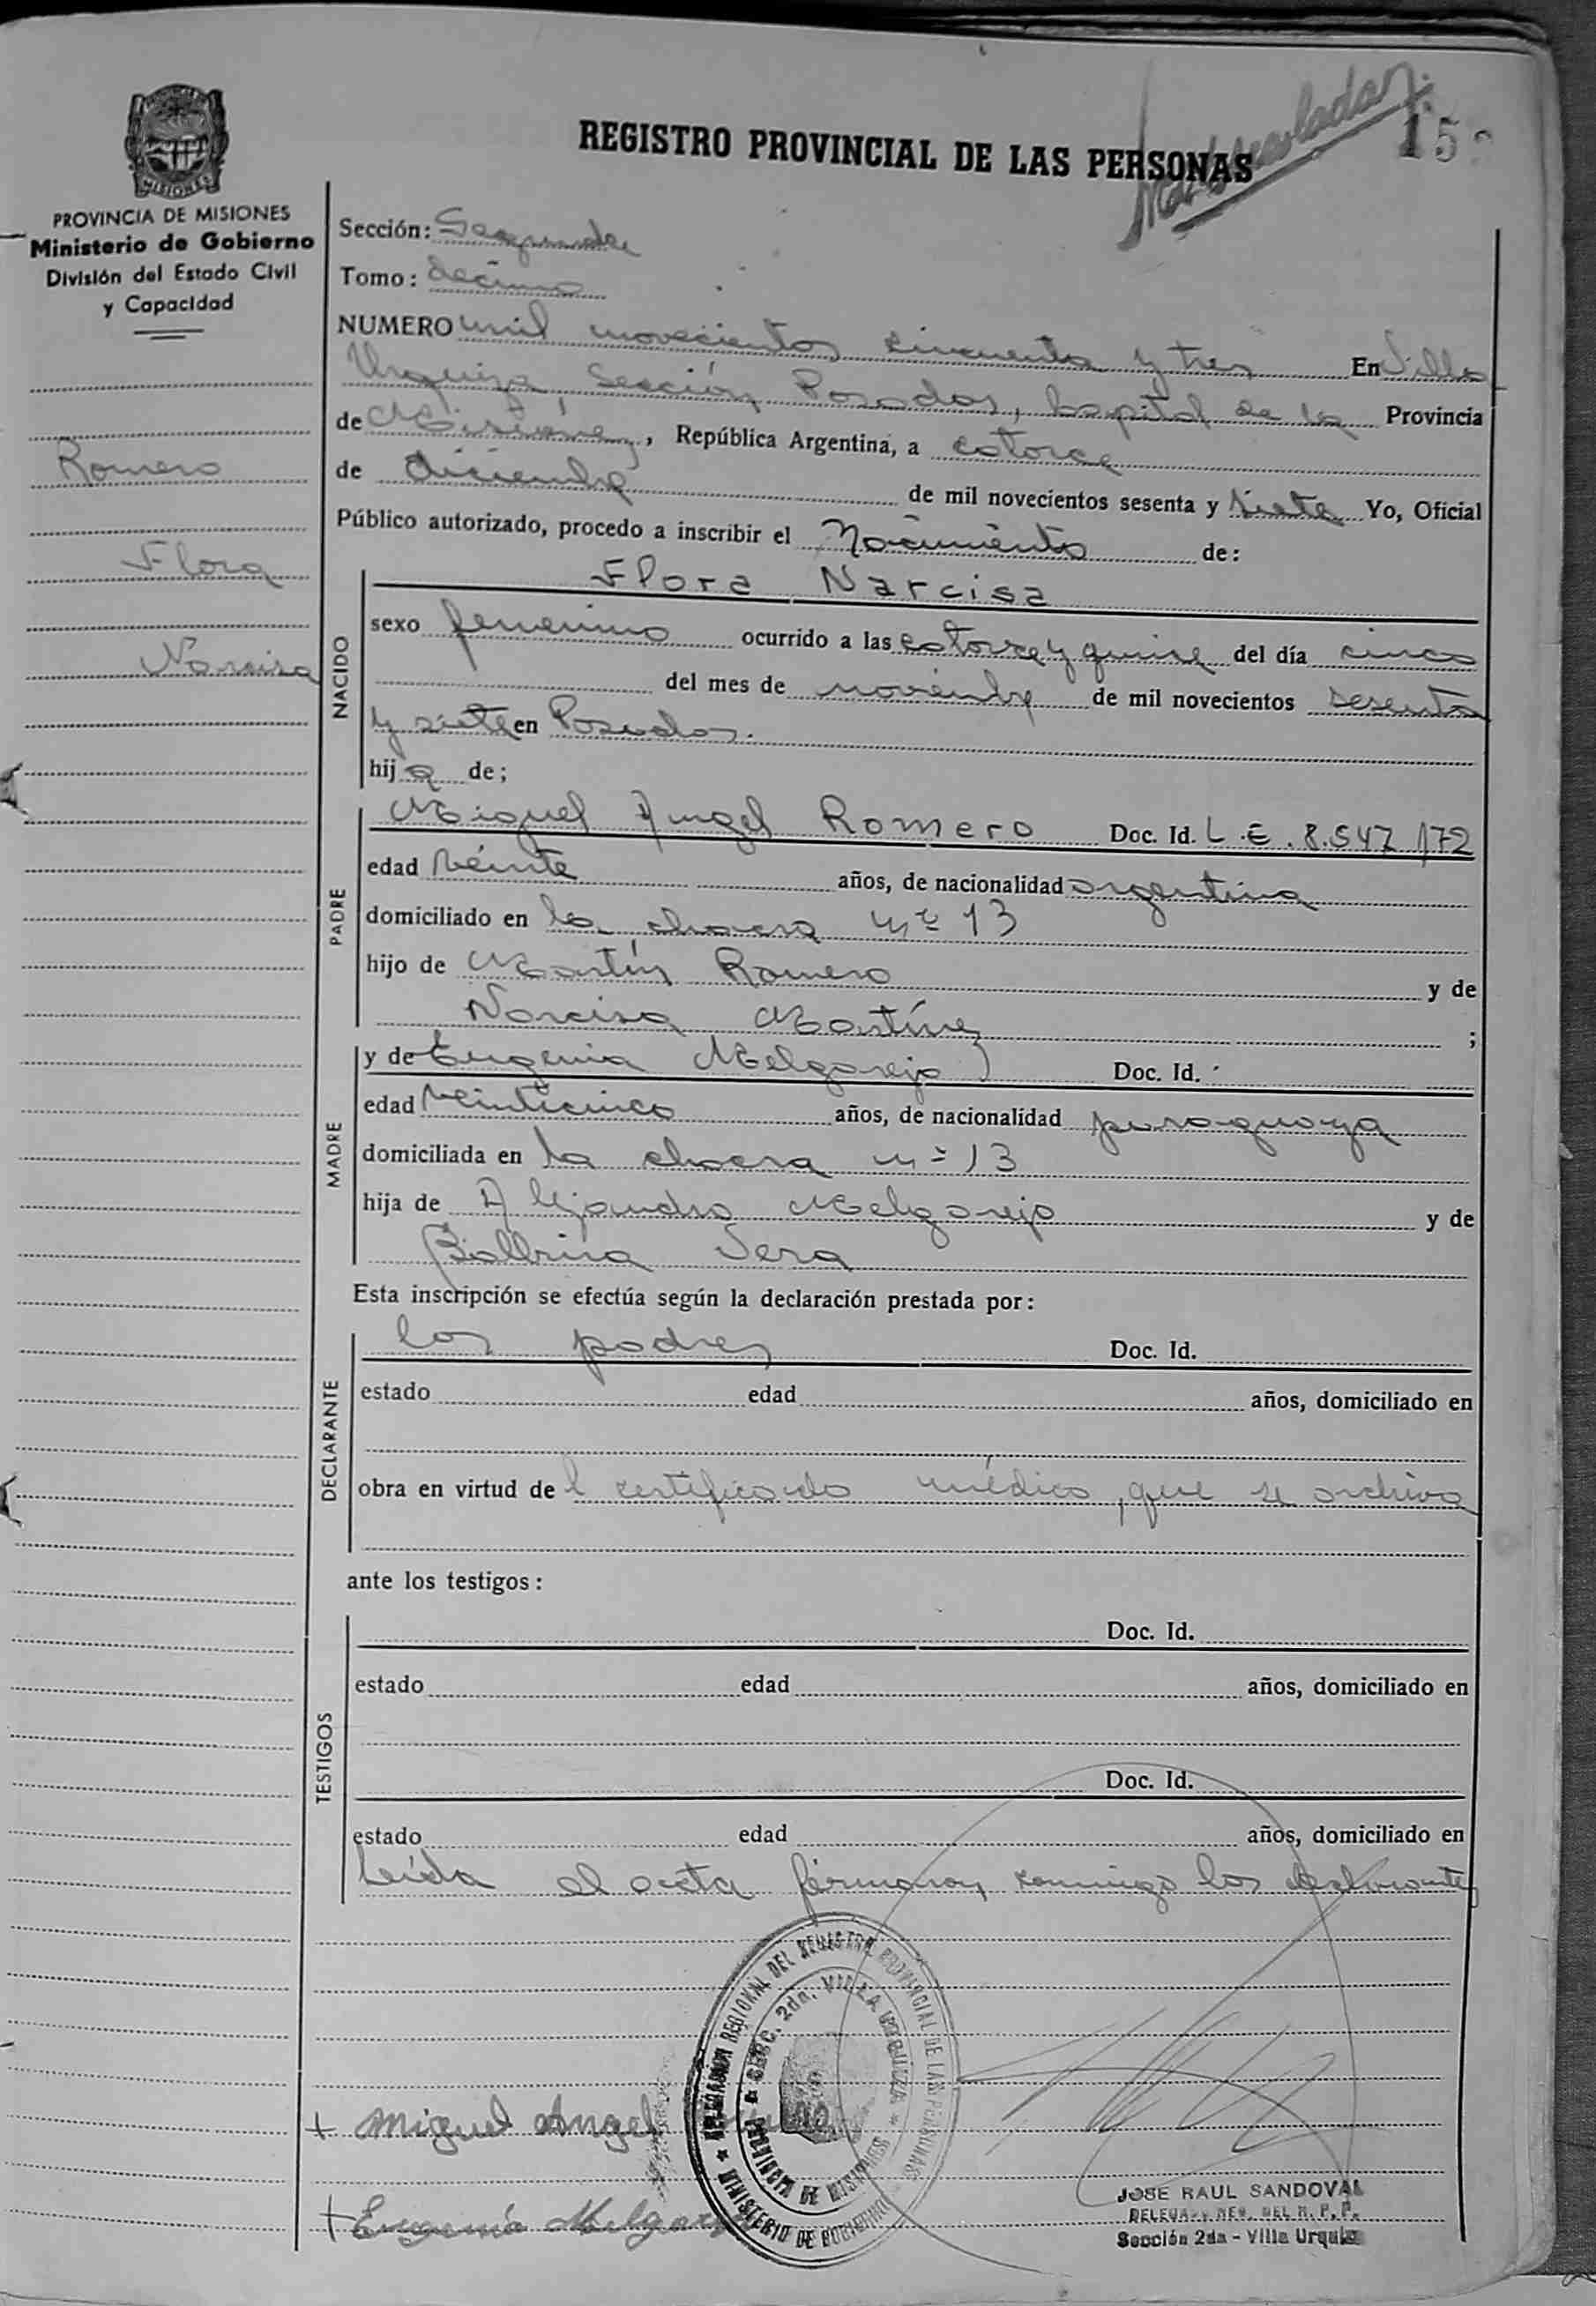 MISIONES
PROVINCIA DE MISIONES
Ministerio de Gobierno
División del Estado Civil
y Capacidad
Romero
Flora
Narcisa
REGISTRO PROVINCIAL DE LAS PERSONAS
15
Sección: Segunda
Tomo: decimo
NUMERO mil novecientos cincuenta y tres En Villa
Urquiza Sección Posadas, Capital de la Provincia
de Misiones, República Argentina, a catorce
de diciembre de mil novecientos sesenta y siete Yo, Oficial
Público autorizado, procedo a inscribir el Nacimiento de:
NACIDO
Flora Narcisa
sexo femenino ocurrido a las catorce y quince del día cinco
del mes de noviembre de mil novecientos sesenta
y siete en Posadas.
hija de;
PADRE
Miguel Angel Romero Doc. Id. L.E. 8.547.172
edad veinte años, de nacionalidad argentina
domiciliado en la chacra nº 13
hijo de Martín Romero y de
Narcisa Martínez ;
MADRE
y de Eugenia Melgarejo Doc. Id.
edad veinticinco años, de nacionalidad paraguaya
domiciliada en la chacra nº 13
hija de Alejandro Melgarejo y de
Balbina Vera
Esta inscripción se efectúa según la declaración prestada por:
DECLARANTE
los padres Doc. Id.
estado edad años, domiciliado en
obra en virtud del certificado médico, que se archiva
ante los testigos:
TESTIGOS
Doc. Id.
estado edad años, domiciliado en
Doc. Id.
estado edad años, domiciliado en
Leída el acta firmaron conmigo los declarantes
DELEGACION REGIONAL DEL REGISTRO PROVINCIAL DE LAS PERSONAS
MINISTERIO DE GOBIERNO
SECC. 2da. VILLA URQUIZA
PROVINCIA DE MISIONES
+ Miguel Angel
+ Eugenia Melgarejo
JOSE RAUL SANDOVAL
DELEGADO REG. DEL R. P. P.
Sección 2da - Villa Urquiza